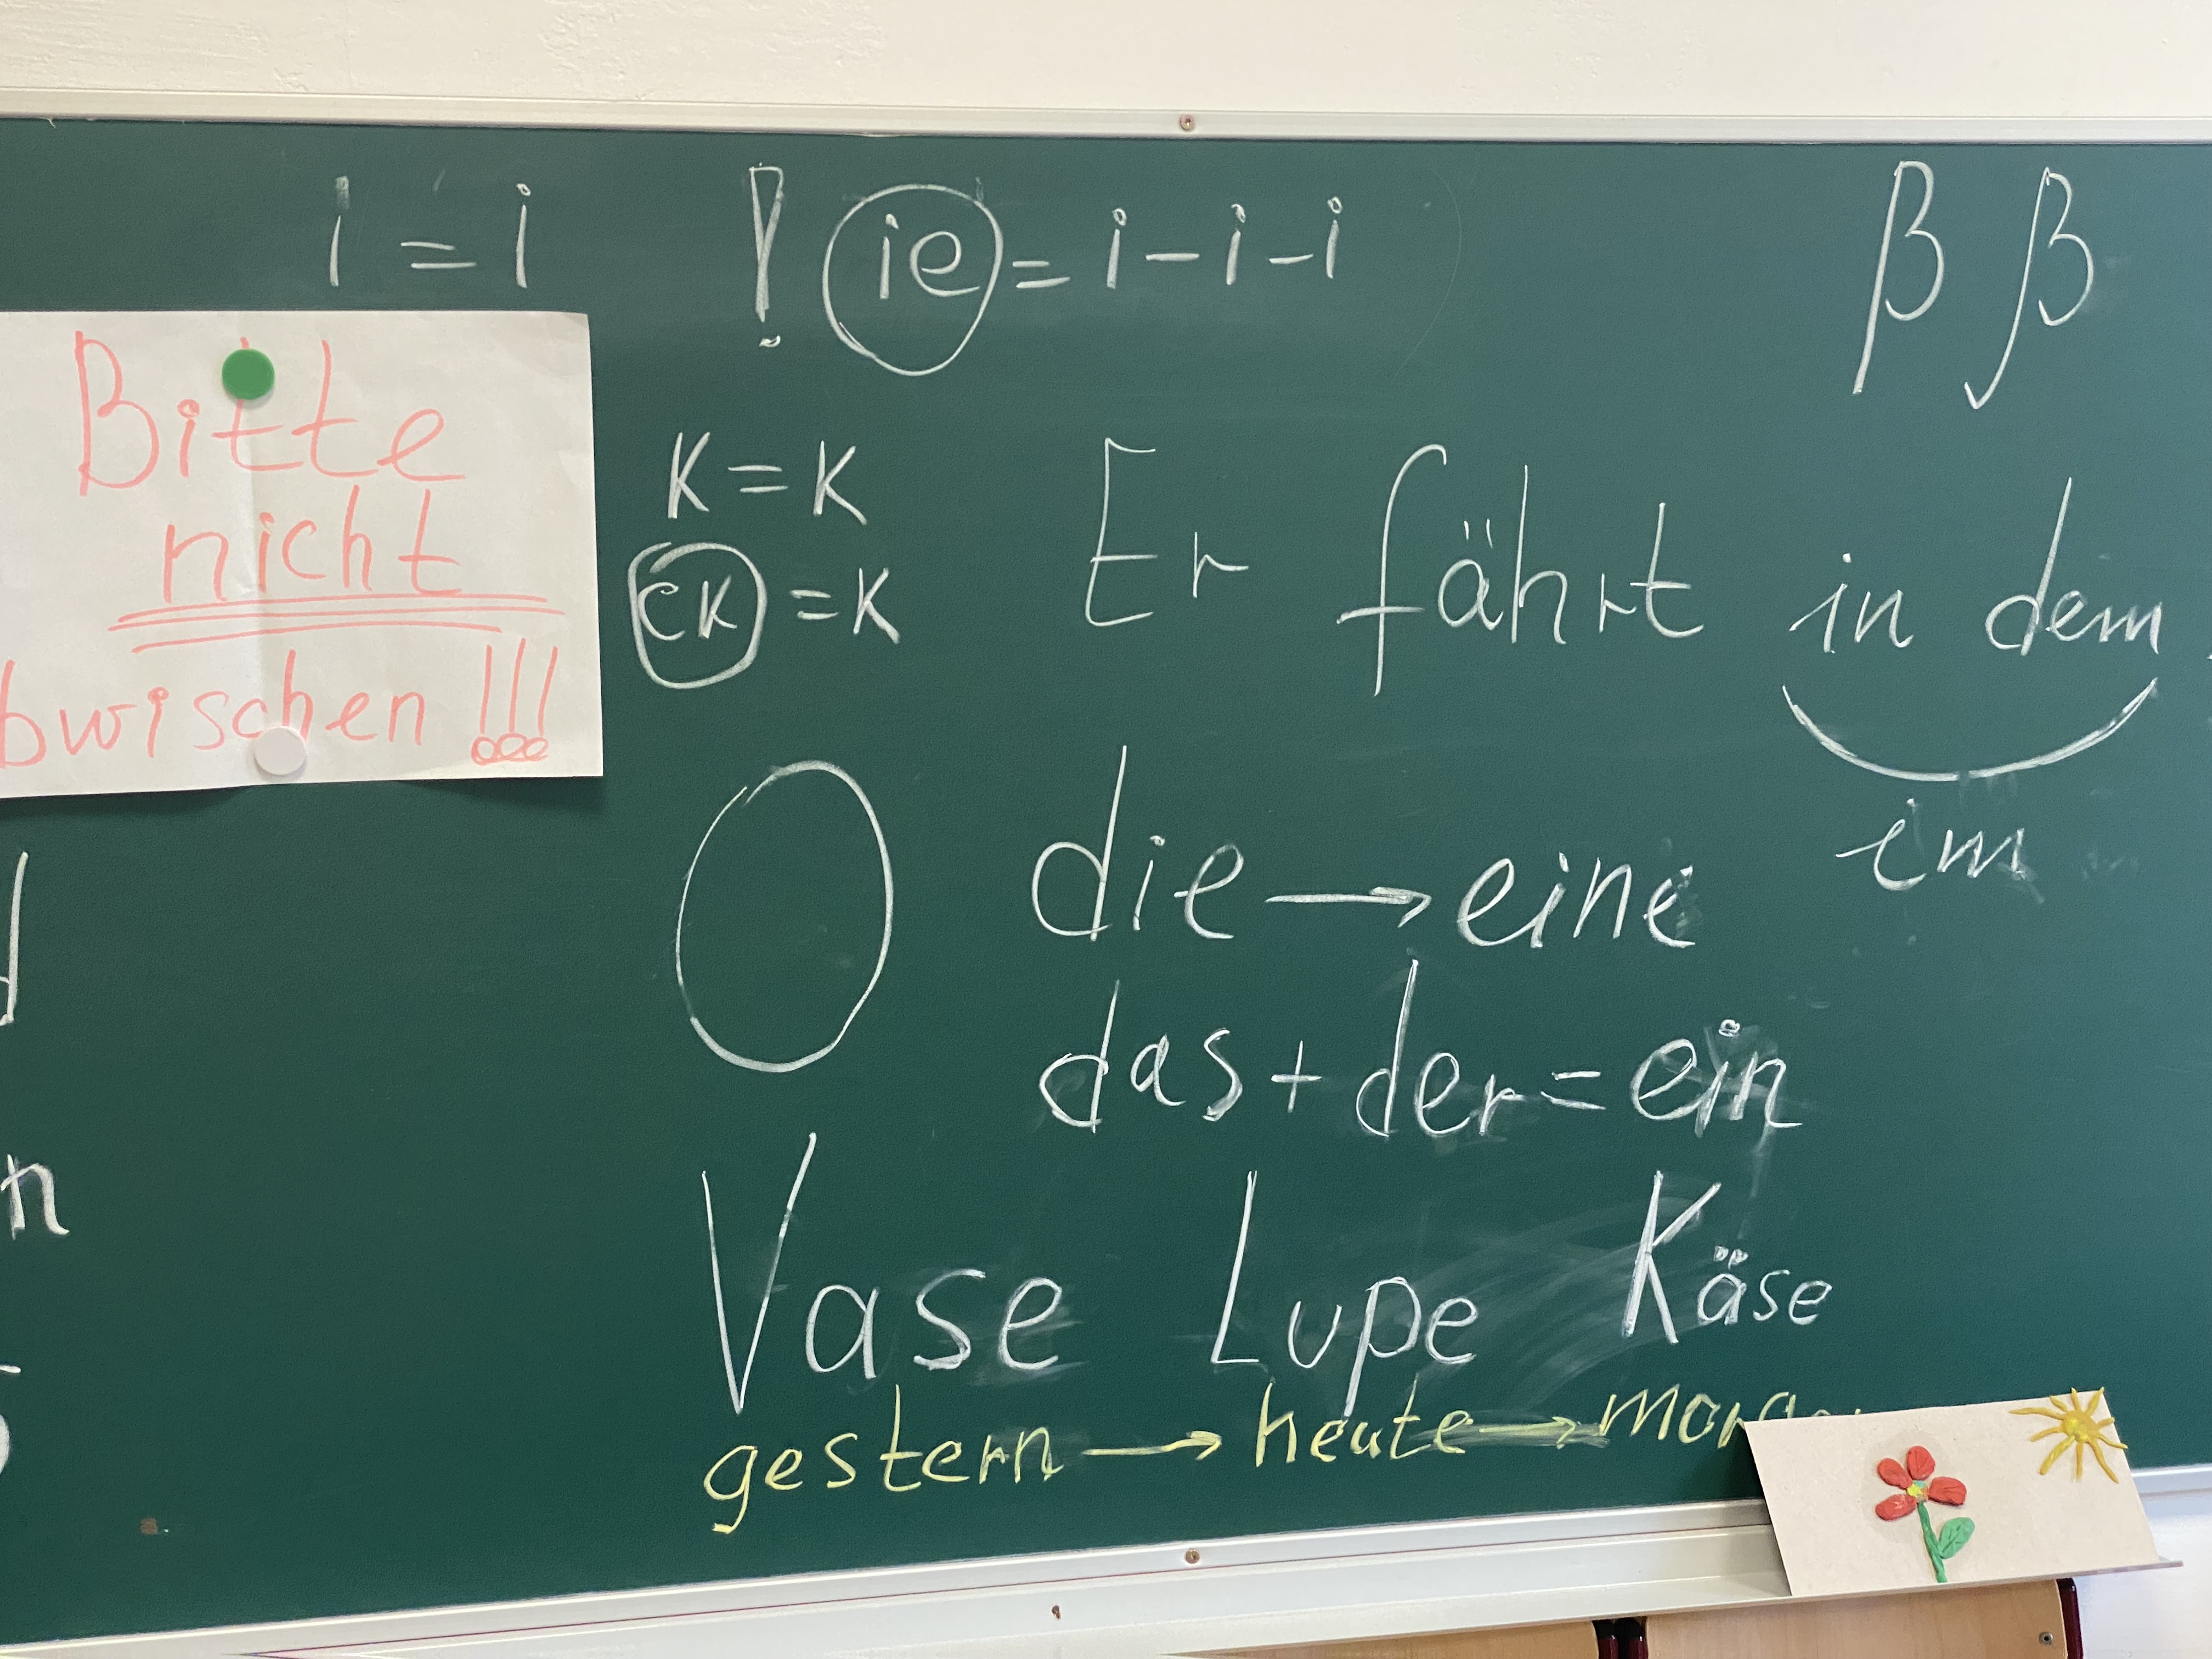 i = i ! ie = i - i - i ß ß
Bitte
nicht
bwischen !!!
K = K
ck = K
Er fährt in dem
im
die → eine
das + der = ein
Vase Lupe Käse
gestern → heute →
d
n